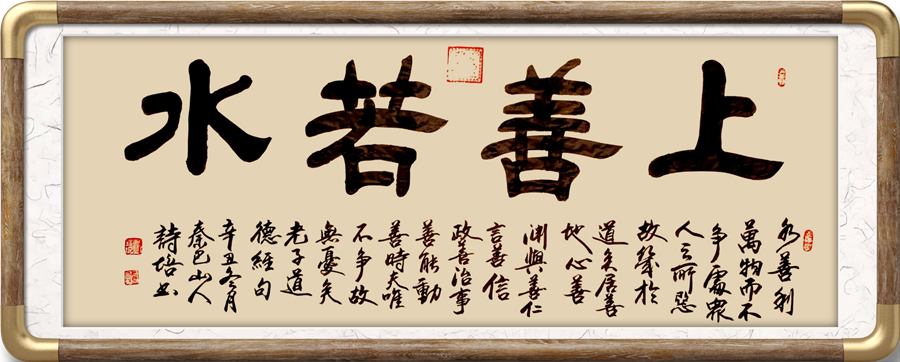 上善若水
水善利
萬物而不
爭處衆
人之所惡
故幾於
道矣居善
地心善
淵與善仁
言善信
政善治事
善能動
善時夫唯
不爭故
無憂矣
老子道
德經句
辛丑冬月
秦巴山人
詩培书